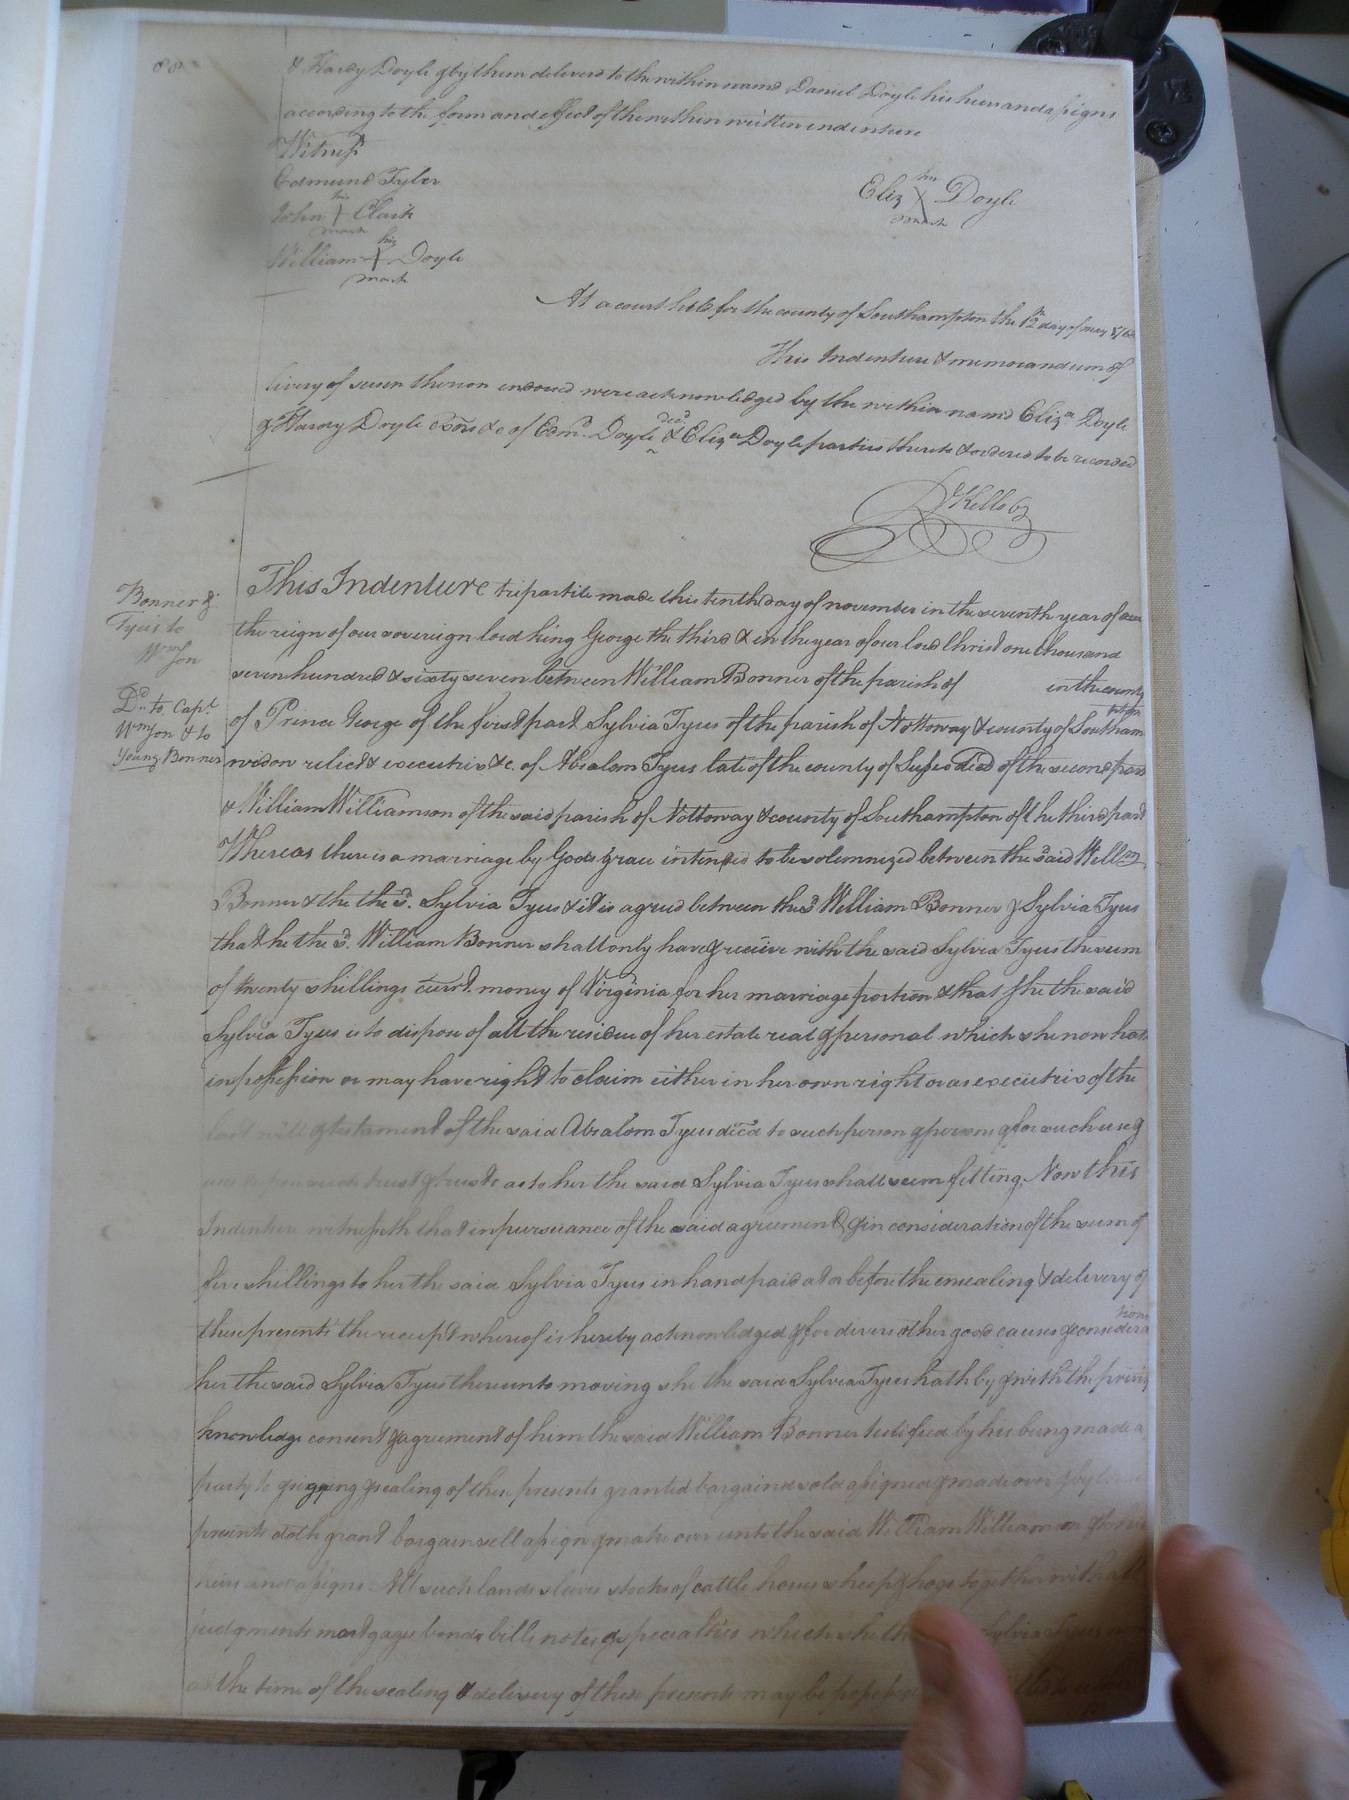 88
& Hardy Doyle & by them deliverd to the within namd Daniel Doyle his heirs and assigns
according to the form and effect of the within written indenture
Witness
Edmund Tyler
his
John Clark
mark
his
William Doyle
mark
her
Eliz Doyle
mark
At a court held for the county of Southampton the 12th day of may
This Indenture & memorandum of
livery of seisen thereon endorsed were acknowledged by the within namd Eliza Doyle
& Hardy Doyle &c of Edmd. Doyle decd. & Eliza Doyle parties thereto & ordered to be recorded
Kello
Bonner &
Tyus to
Wmson
Do. to Capt
Wmson & to
Young Bonner
This Indenture tripartite made this tenth day of november in the seventh year of our
the reign of our sovereign lord king George the third & in the year of our lord christ one thousand
seven hundred & sixty seven between William Bonner of the parish of in the county
of Prince George of the first part Sylvia Tyus of the parish of Nottoway & county of Southam
pton
widow relict & executrix &c. of Absalom Tyus late of the county of decd of the second part
& William Williamson of the said parish of Nottoway & county of Southampton of the third part
Whereas there is a marriage by Gods grace intended to be solemnized between the said William
Bonner & the the sd. Sylvia Tyus & it is agreed between the sd William Bonner & Sylvia Tyus
that he the sd. William Bonner shall only have & receive with the said Sylvia Tyus the sum
of twenty shillings currt. money of Virginia for her marriage portion & that she the said
Sylvia Tyus is to dispose of all the residue of her estate real & personal which she now hath
in possession or may have right to claim either in her own right or as executrix of the
last will & testament of the said Absalom Tyus decd to such person & persons & for such use &
uses trust & trusts as to her the said Sylvia Tyus shall seem fitting. Now this
Indenture witnesseth that in pursuance of the said agreement & in consideration of the sum of
five shillings to her the said Sylvia Tyus in hand paid at or before the ensealing & delivery of
these presents the receipt whereof is hereby acknowledged & for divers other good causes & considera
tions
her the said Sylvia Tyus thereunto moving she the said Sylvia Tyus hath by & with the privity
knowledge consent & agreement of him the said William Bonner testified by his being made a
party to & signing & sealing of these presents granted bargaind sold assigned & made over & by
presents doth grant bargain sell assign & make over unto the said William Williamson
heirs and assigns All such lands slaves stocks of cattle horses sheep & hogs together with all
judgments mortgages bonds bills notes & specialties which she the Sylvia Tyus
at the time of the sealing & delivery of these presents may be